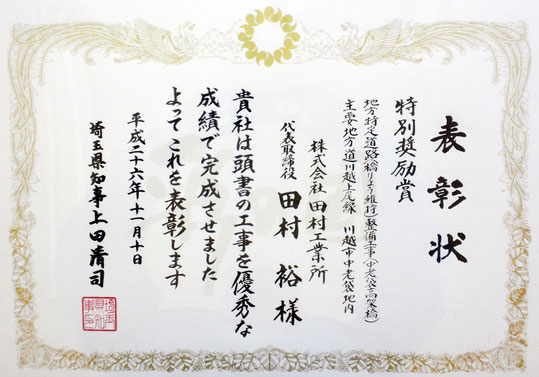 表彰状
特別奨励賞
地方特定道路(橋りょう維持)整備工事(中老袋高架橋)
主要地方道川越上尾線 川越市中老袋地内
株式会社田村工業所
代表取締役 田村 裕 様
貴社は頭書の工事を優秀な
成績で完成させました
よってこれを表彰します
平成二十六年十一月十日
埼玉県知事上田清司